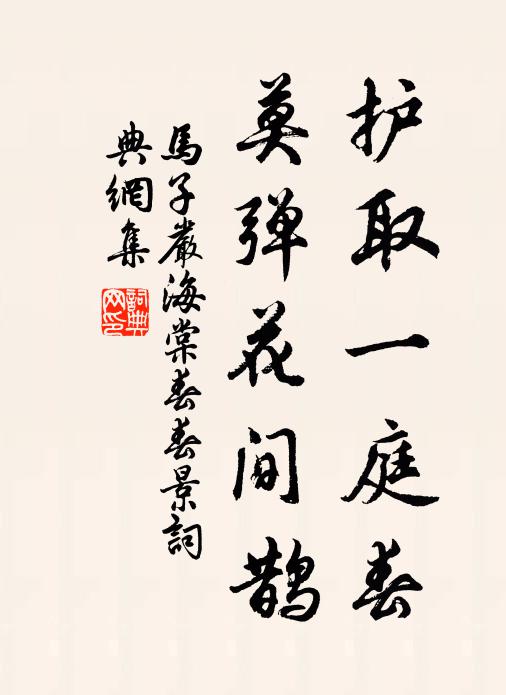 护取一庭春
莫弹花间鹊
馬子嚴海棠春春景詞
典網集
詞典
网印